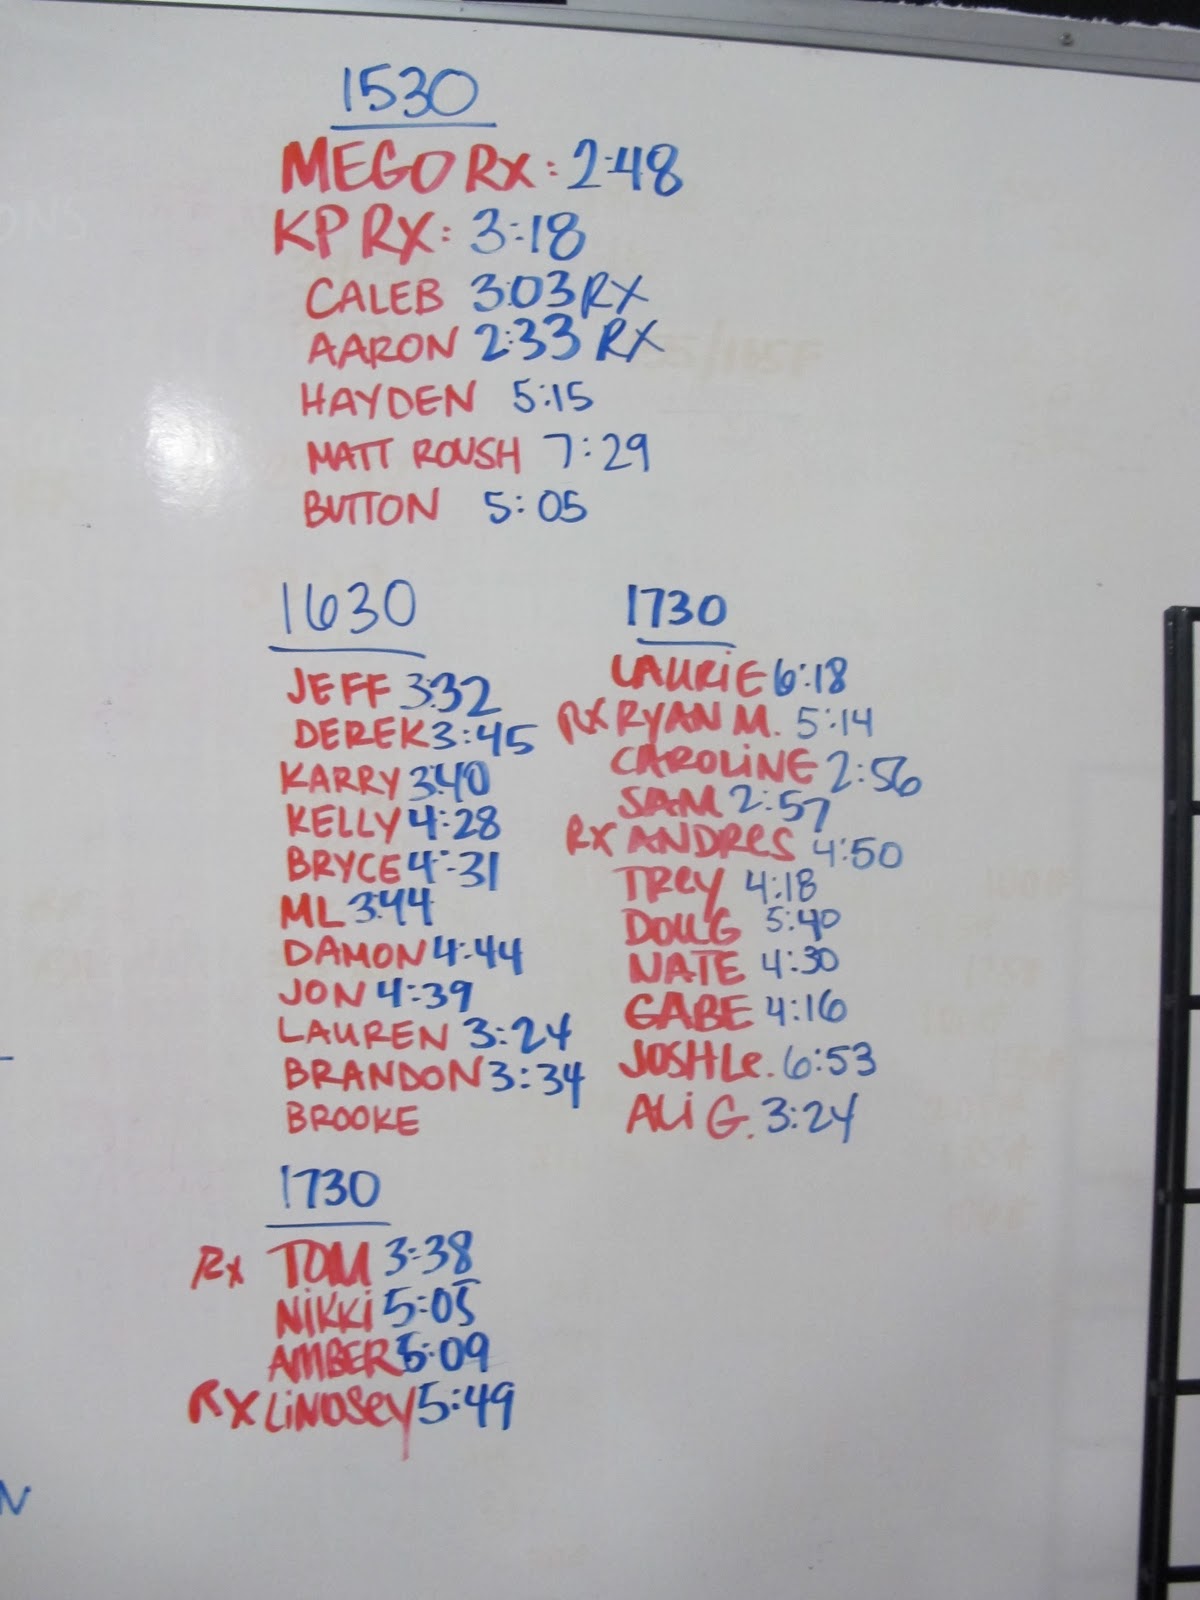 1530
MEGO RX: 2:48
KP RX: 3:18
CALEB 3:03 RX
AARON 2:33 RX
HAYDEN 5:15
MATT ROUSH 7:29
BUTTON 5:05
1630
JEFF 3:32
DEREK 3:45
KARRY 3:40
KELLY 4:28
BRYCE 4:31
ML 3:44
DAMON 4:44
JON 4:39
LAUREN 3:24
BRANDON 3:34
BROOKE
1730
LAURIE 6:18
RX RYAN M. 5:14
CAROLINE 2:56
SAM 2:57
RX ANDRES 4:50
TREY 4:18
DOUG 5:40
NATE 4:30
GABE 4:16
JOSH Le. 6:53
ALi G. 3:24
1730
Rx TOM 3:38
NiKKi 5:05
AMBER 5:09
RX LiNDSEY 5:49